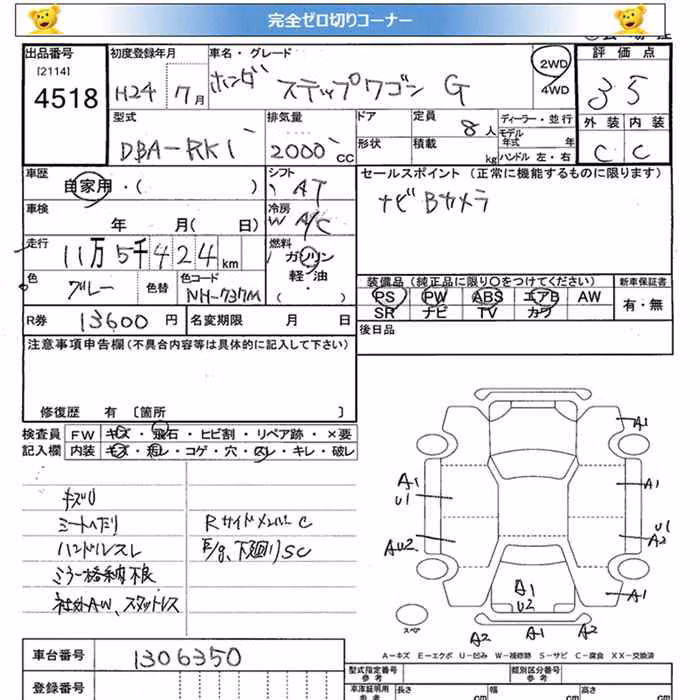 完全ゼロ切りコーナー
出品番号 初度登録年月 車名・グレード 評価点
[2114]
4518 H24 7月 ホンダ ステップワゴン G 2WD 35
4WD
型式 排気量 ドア 定員 8人 ディーラー・並行 外装 内装
DBA-RK1 2000cc 形状 積載 kg モデル年式 年 C C
ハンドル 左・右
車歴 シフト セールスポイント (正常に機能するものに限ります)
自家用・( ) AT ナビ Bカメラ
車検 冷房
年 月( 日) W A/C
走行 燃料
11万5千424km ガソリン
軽・油
・( )
色 色替 色コード 装備品 (純正品に限り○をつけてください) 新車保証書
グレー NH-737M PS PW ABS エアB AW 有・無
R券 13600円 名変期限 月 日 SR ナビ TV カワ
後日品
注意事項申告欄 (不具合内容等は具体的に記入して下さい)
修復歴 有 〔箇所 〕
検査員 FW キズ・飛石・ヒビ割・リペア跡・×要
記入欄 内装 キズ・汚レ・コゲ・穴・スレ・キレ・破レ
キズU
シートヘタリ RサイドメンバーC
ハンドルスレ E/g、下廻りSC
ミラー格納不良
社外AW、スタッドレス
A1
A1 U1 A1
AU2 U1 A2
A1 U2 A1
スペア
A2 A1 A2
A-キズ E-エクボ U-凹み W-補修跡 S-サビ C-腐食 XX-交換済
車台番号 1306350 型式指定番号 参考 類別区分番号 参考
登録番号 車庫証明用 参考 長さ cm 幅 cm 高さ cm